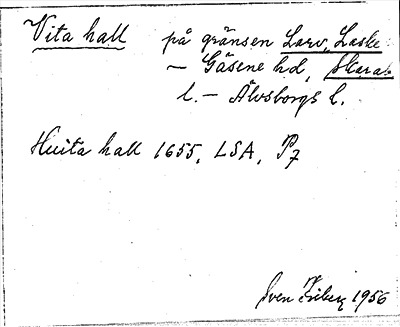 Vita hall på gränsen Larv, Laske
— Gäsene hd, Skarab.
l. — Älvsborgs l.
Huita hall 1655, LSA, P7
Sven Friberg 1956